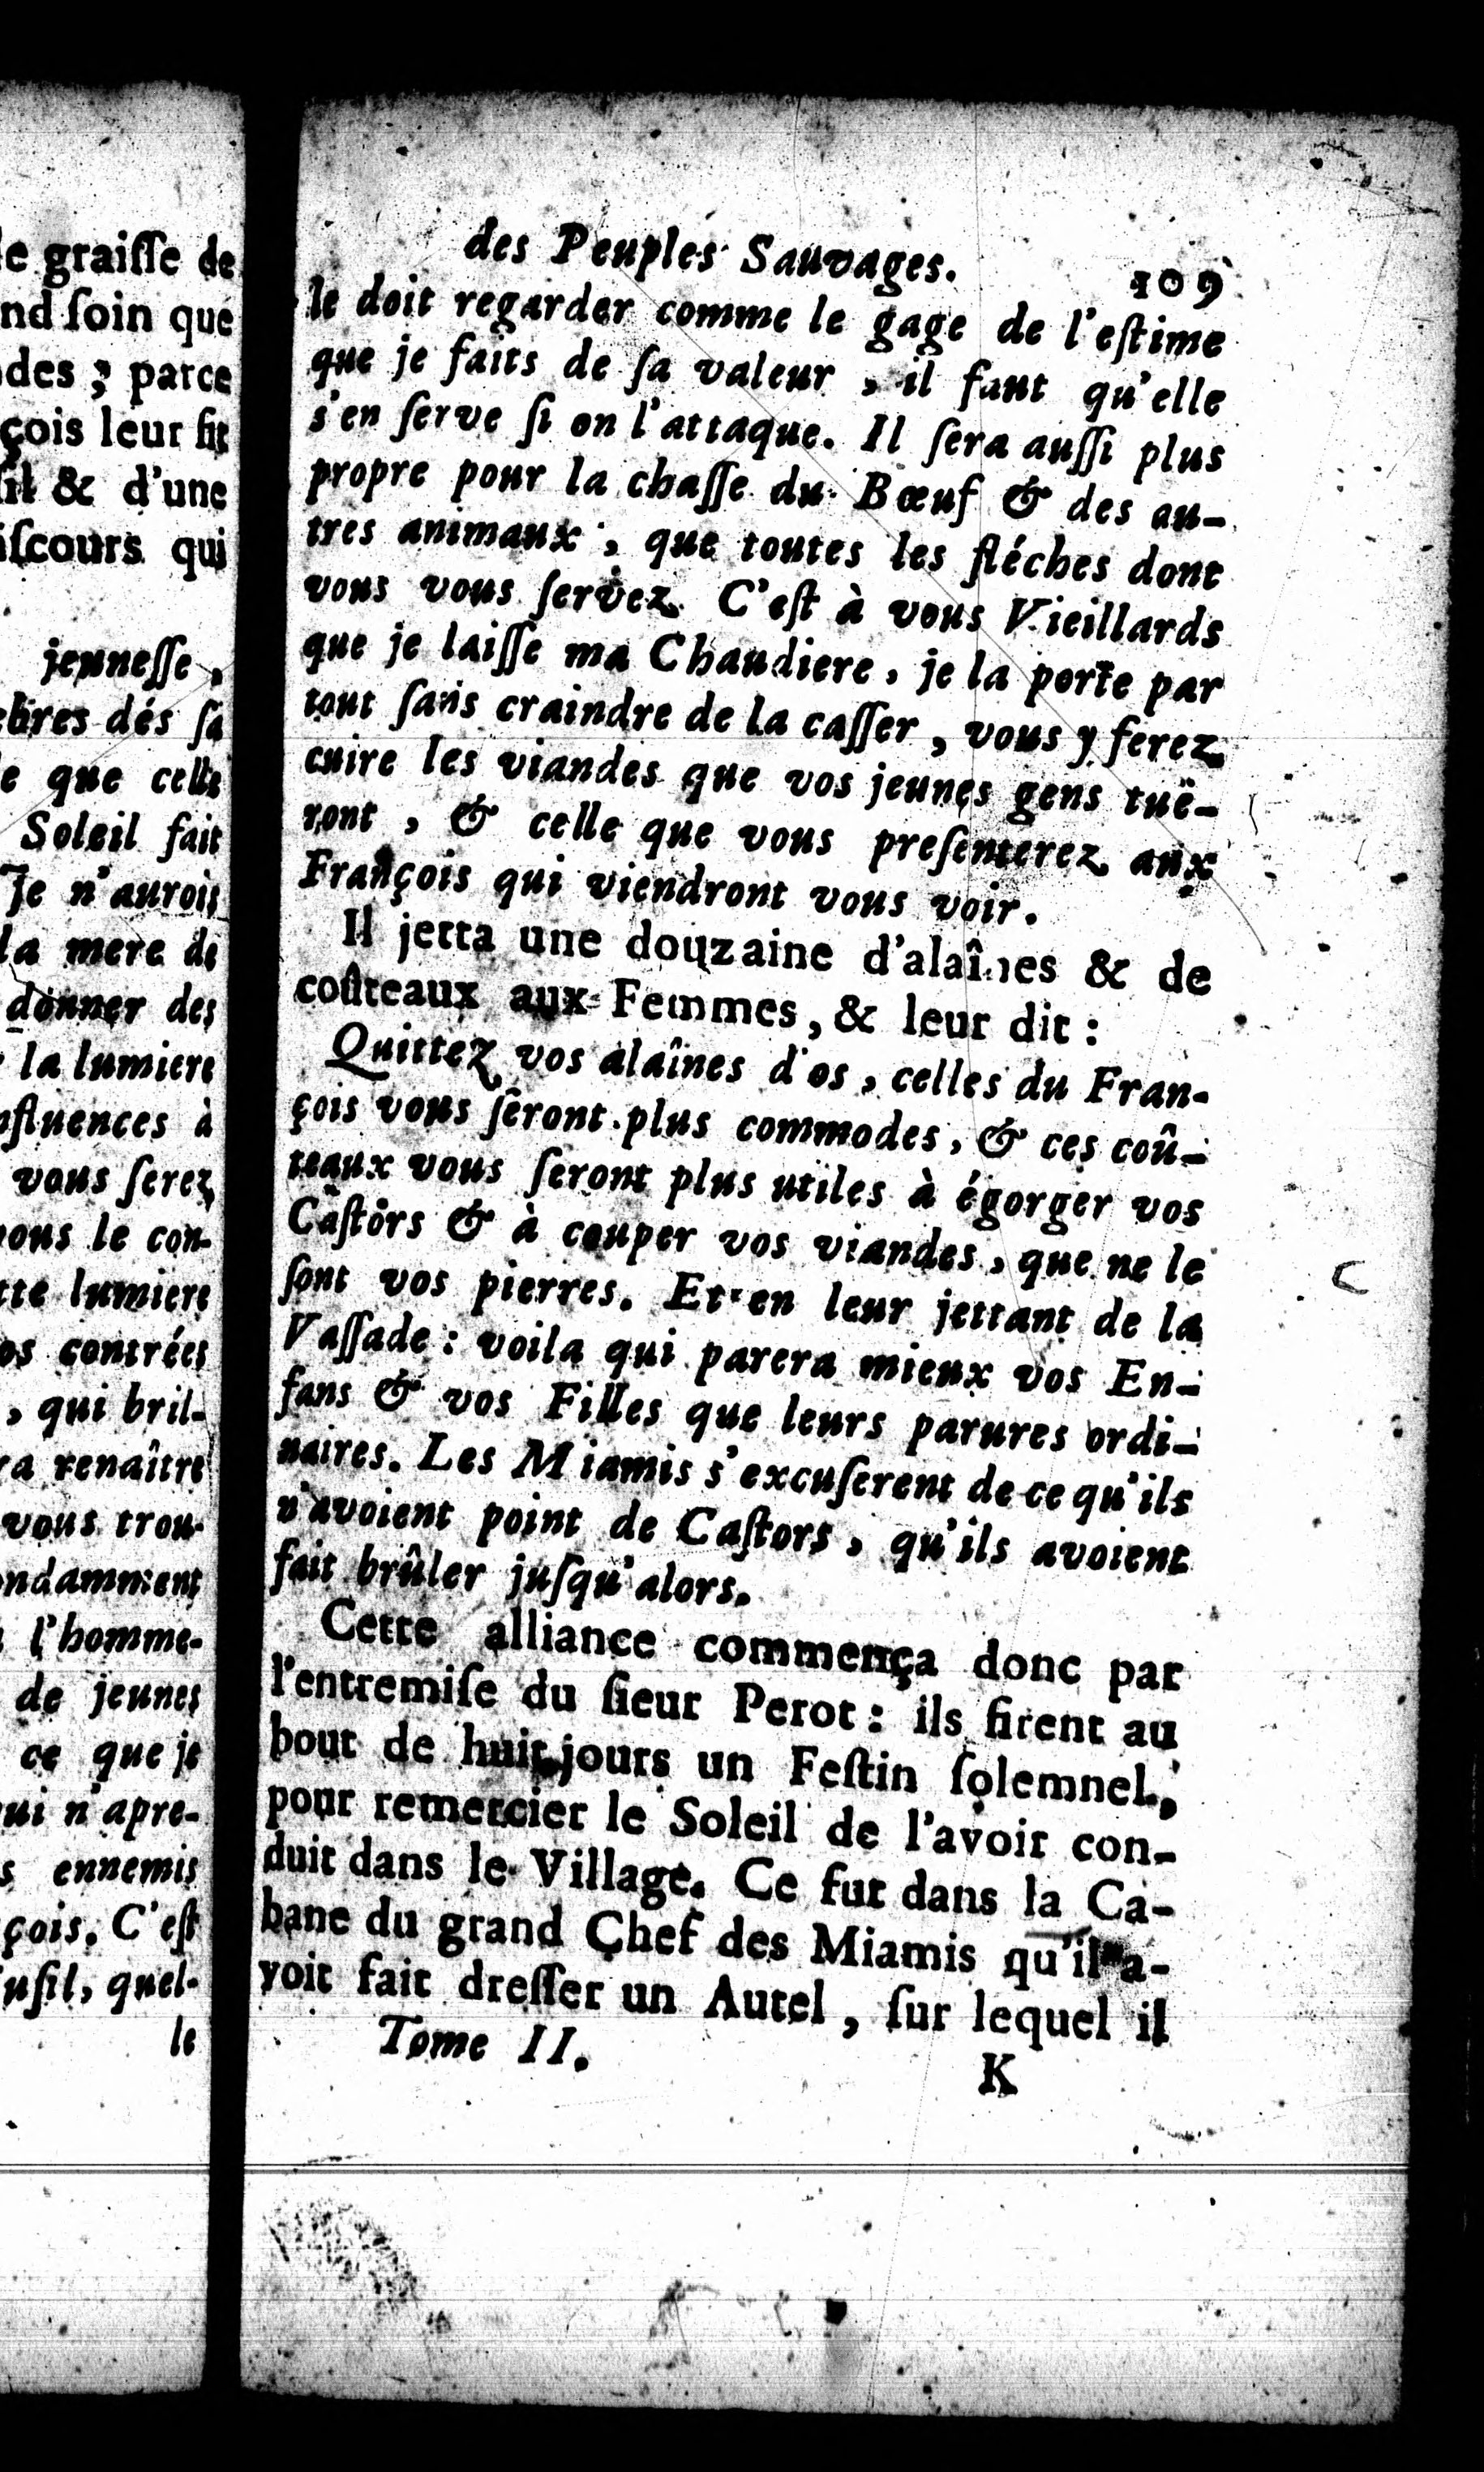 e graiſſe de
nd ſoin que
des ; parce
çois leur fit
ſil & d'une
iſcours qui
jeuneſſe ,
ebres dés ſa
e que celle
Soleil fait
Je n'aurois
la mere de
donner des
la lumiere
nfluences à
vous ſerez
nous le con-
tte lumiere
os contrées
, qui bril-
ra renaître
vous trou-
ondamment
l'homme-
de jeunes
ce que je
qui n'apre-
s ennemis
çois. C'eſt
fuſil, quel-
le
des Peuples Sauvages. 109
le doit regarder comme le gage de l'eſtime
que je faits de ſa valeur , il faut qu'elle
s'en ſerve ſi on l'attaque. Il ſera auſſi plus
propre pour la chaſſe du Bœuf & des au-
tres animaux , que toutes les fléches dont
vous vous ſervez. C'eſt à vous Vieillards
que je laiſſe ma Chaudiere, je la porte par
tout ſans craindre de la caſſer , vous y ferez
cuire les viandes que vos jeunes gens tuë-
ront , & celle que vous preſenterez aux
François qui viendront vous voir.
Il jetta une douzaine d'alaînes & de
coûteaux aux Femmes, & leur dit :
Quittez vos alaînes d'os , celles du Fran-
çois vous ſeront plus commodes, & ces coû-
teaux vous ſeront plus utiles à égorger vos
Caſtors & à couper vos viandes , que ne le
ſont vos pierres. Et en leur jettant de la
Vaſſade : voila qui parera mieux vos En-
fans & vos Filles que leurs parures ordi-
naires. Les Miamis s'excuſerent de ce qu'ils
n'avoient point de Caſtors , qu'ils avoient
fait brûler juſqu'alors.
Cette alliance commença donc par
l'entremiſe du ſieur Perot : ils firent au
bout de huit jours un Feſtin ſolemnel,
pour remercier le Soleil de l'avoir con-
duit dans le Village. Ce fut dans la Ca-
bane du grand Chef des Miamis qu'il a-
voit fait dreſſer un Autel , ſur lequel il
Tome II. K